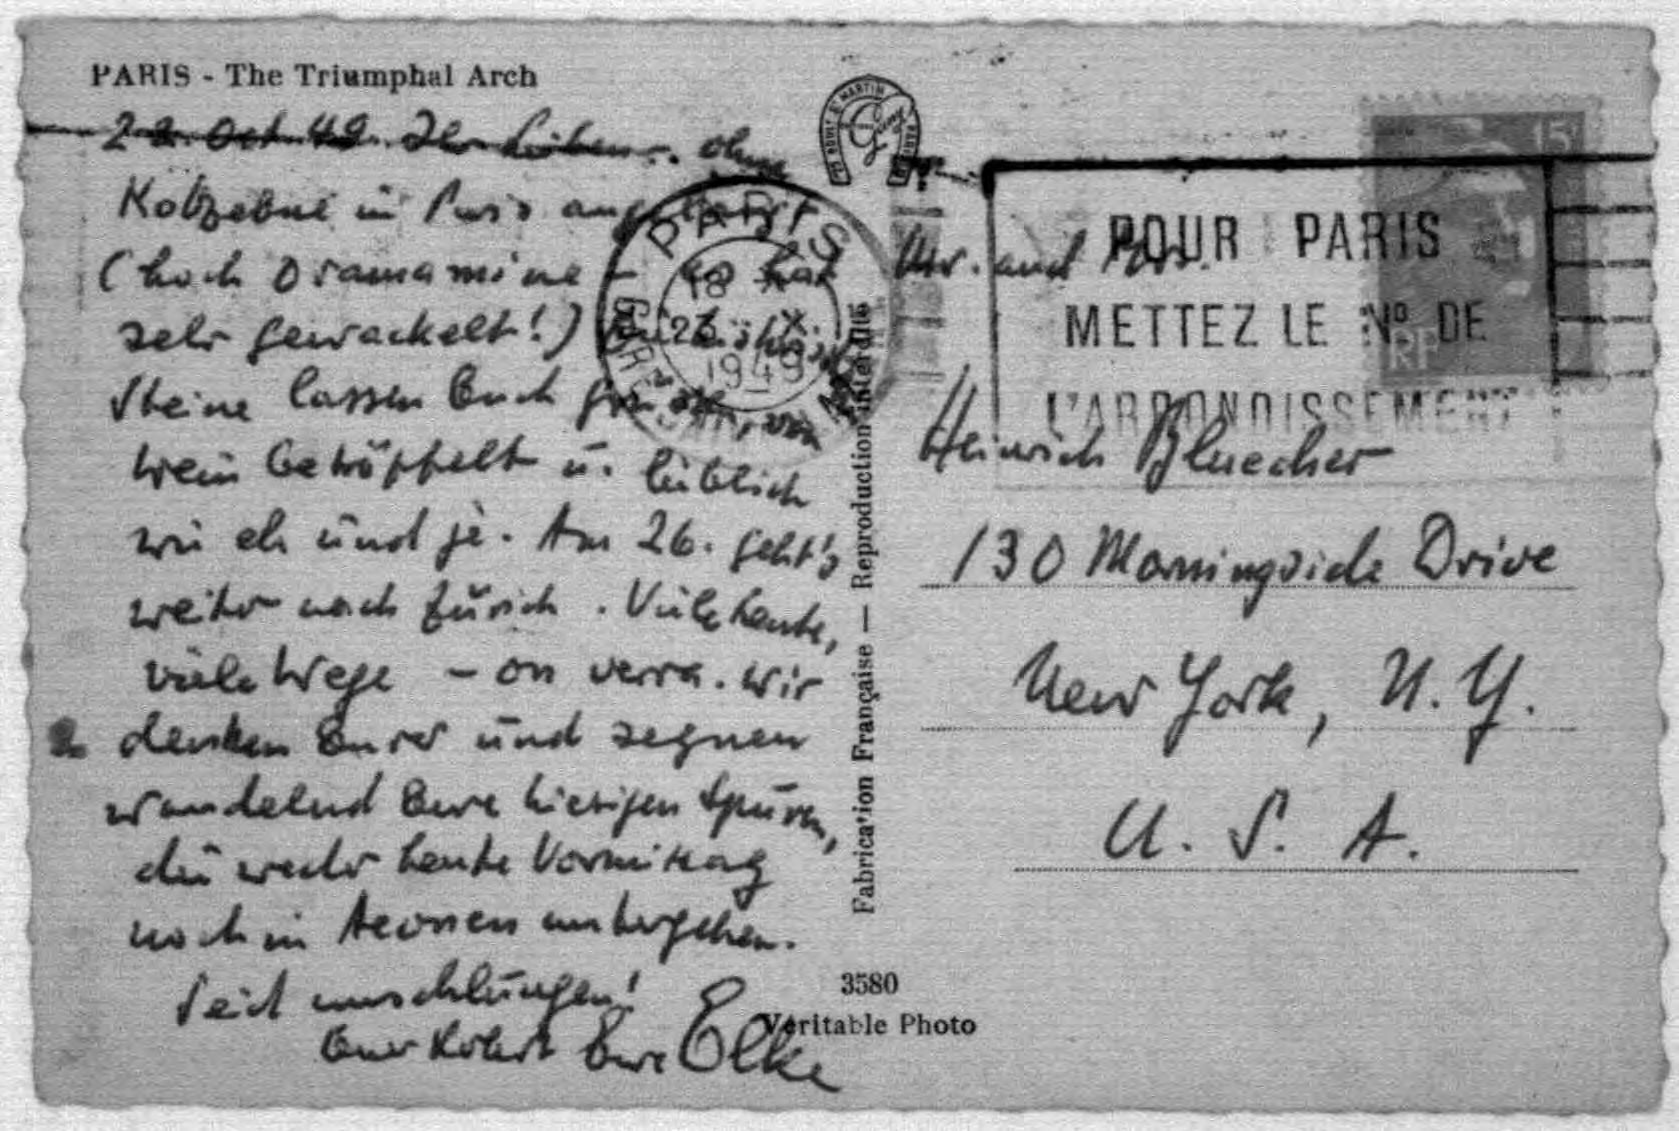 PARIS - The Triumphal Arch
22. Oct 49. Ihr Lieben. ohne
Kotzebue in Paris
(hoch Dramamine - es hat
sehr gewackelt!)
Steine lassen Euch
wein getröpfelt u. lieblich
wie eh und je. Am 26. geht's
weiter nach Zürich. Viele Leute,
viele Wege - on verra. Wir
denken Eurer und segnen
wandelnd Eure hiesigen Spuren,
die weder heute Vormittag
noch in Aeonen untergehen.
Seid umschlungen!
Euer Robert Eure Elke
Fabrication Française — Reproduction interdite
3580
Véritable Photo
PARIS
18 H
23 X.
1949
POUR PARIS
METTEZ LE Nº DE
L'ARRONDISSEMENT
15f
RF
Mr. and Mrs.
Heinrich Bluecher
130 Morningside Drive
New York, N.Y.
U. S. A.